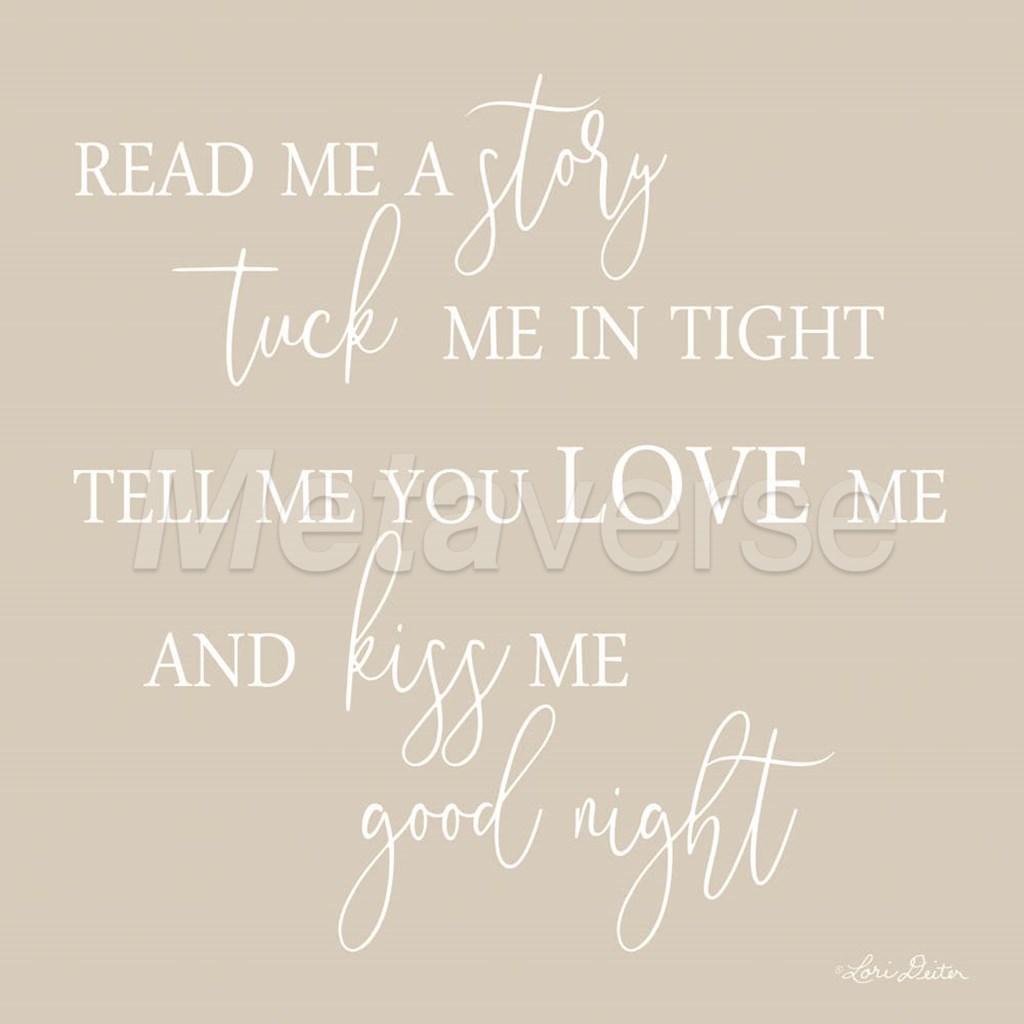 READ ME A story
tuck ME IN TIGHT
TELL ME YOU LOVE ME
Metaverse
AND kiss ME
good night
©Lori Deiter